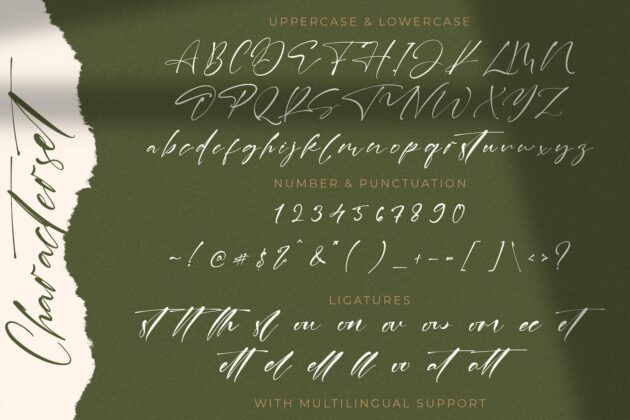 Characterset
UPPERCASE & LOWERCASE
A B C D E F G H I J K L M N
O P Q R S T U V W X Y Z
a b c d e f g h i j k l m n o p q r s t u v w x y z
NUMBER & PUNCTUATION
1 2 3 4 5 6 7 8 9 0
~ ! @ # $ % ^ & * ( ) _ + - = [ ] \ < > ?
LIGATURES
st tt th sl ou on ov ow om ee et
ett el ell ll oo at att
WITH MULTILINGUAL SUPPORT